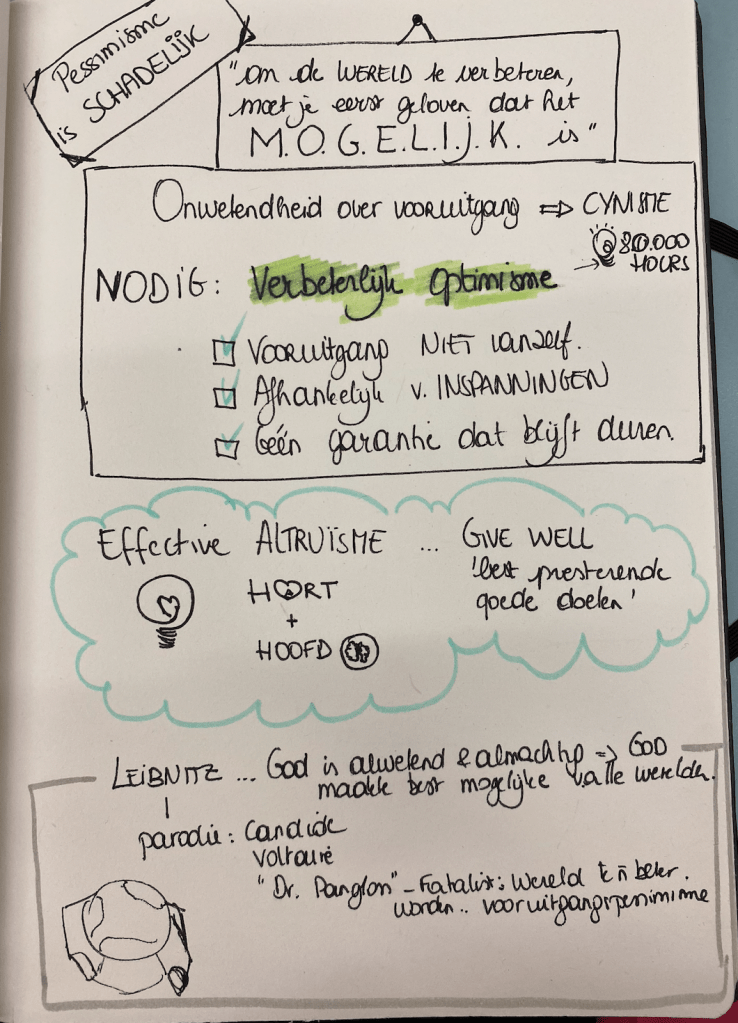 Pessimisme
is SCHADELIJK
"om de WERELD te verbeteren,
moet je eerst geloven dat het
M.O.G.E.L.I.J.K. is"
Onwetendheid over vooruitgang => CYNISME
80.000
HOURS
NODIG: Verbeterlijk Optimisme
Vooruitgang NIET vanzelf.
Afhankelijk v. INSPANNINGEN
Géén garantie dat blijft duren.
Effective ALTRUÏSME ... GIVE WELL
'best presterende
goede doelen'
HART
+
HOOFD
LEIBNITZ ... God is alwetend & almachtig => GOD
maakte best mogelijke v. alle werelden.
parodie: Candide
Voltaire
"Dr. Panglos" - Fatalist: Wereld k ñ beter
worden.. vooruitgangspessimisme